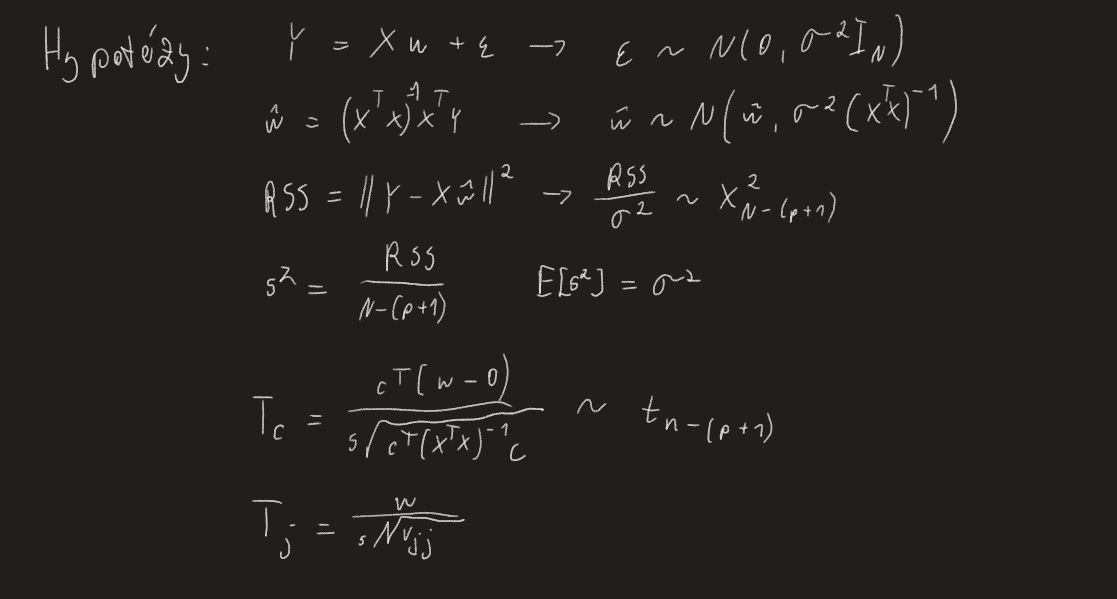 Hypotézy: Y = Xw + ε → ε ~ N(0, σ²I_N)
ŵ = (xᵀx)⁻¹xᵀY → w̃ ~ N(w̃, σ²(xᵀx)⁻¹)
RSS = ||Y - Xŵ||² → RSS/σ² ~ χ²_{N-(p+1)}
s² = RSS/(N-(p+1)) E[s²] = σ²
T_c = cᵀ(w-0)/(s√(cᵀ(xᵀx)⁻¹c)) ~ t_{n-(p+1)}
T_j = w/(s√v_jj)